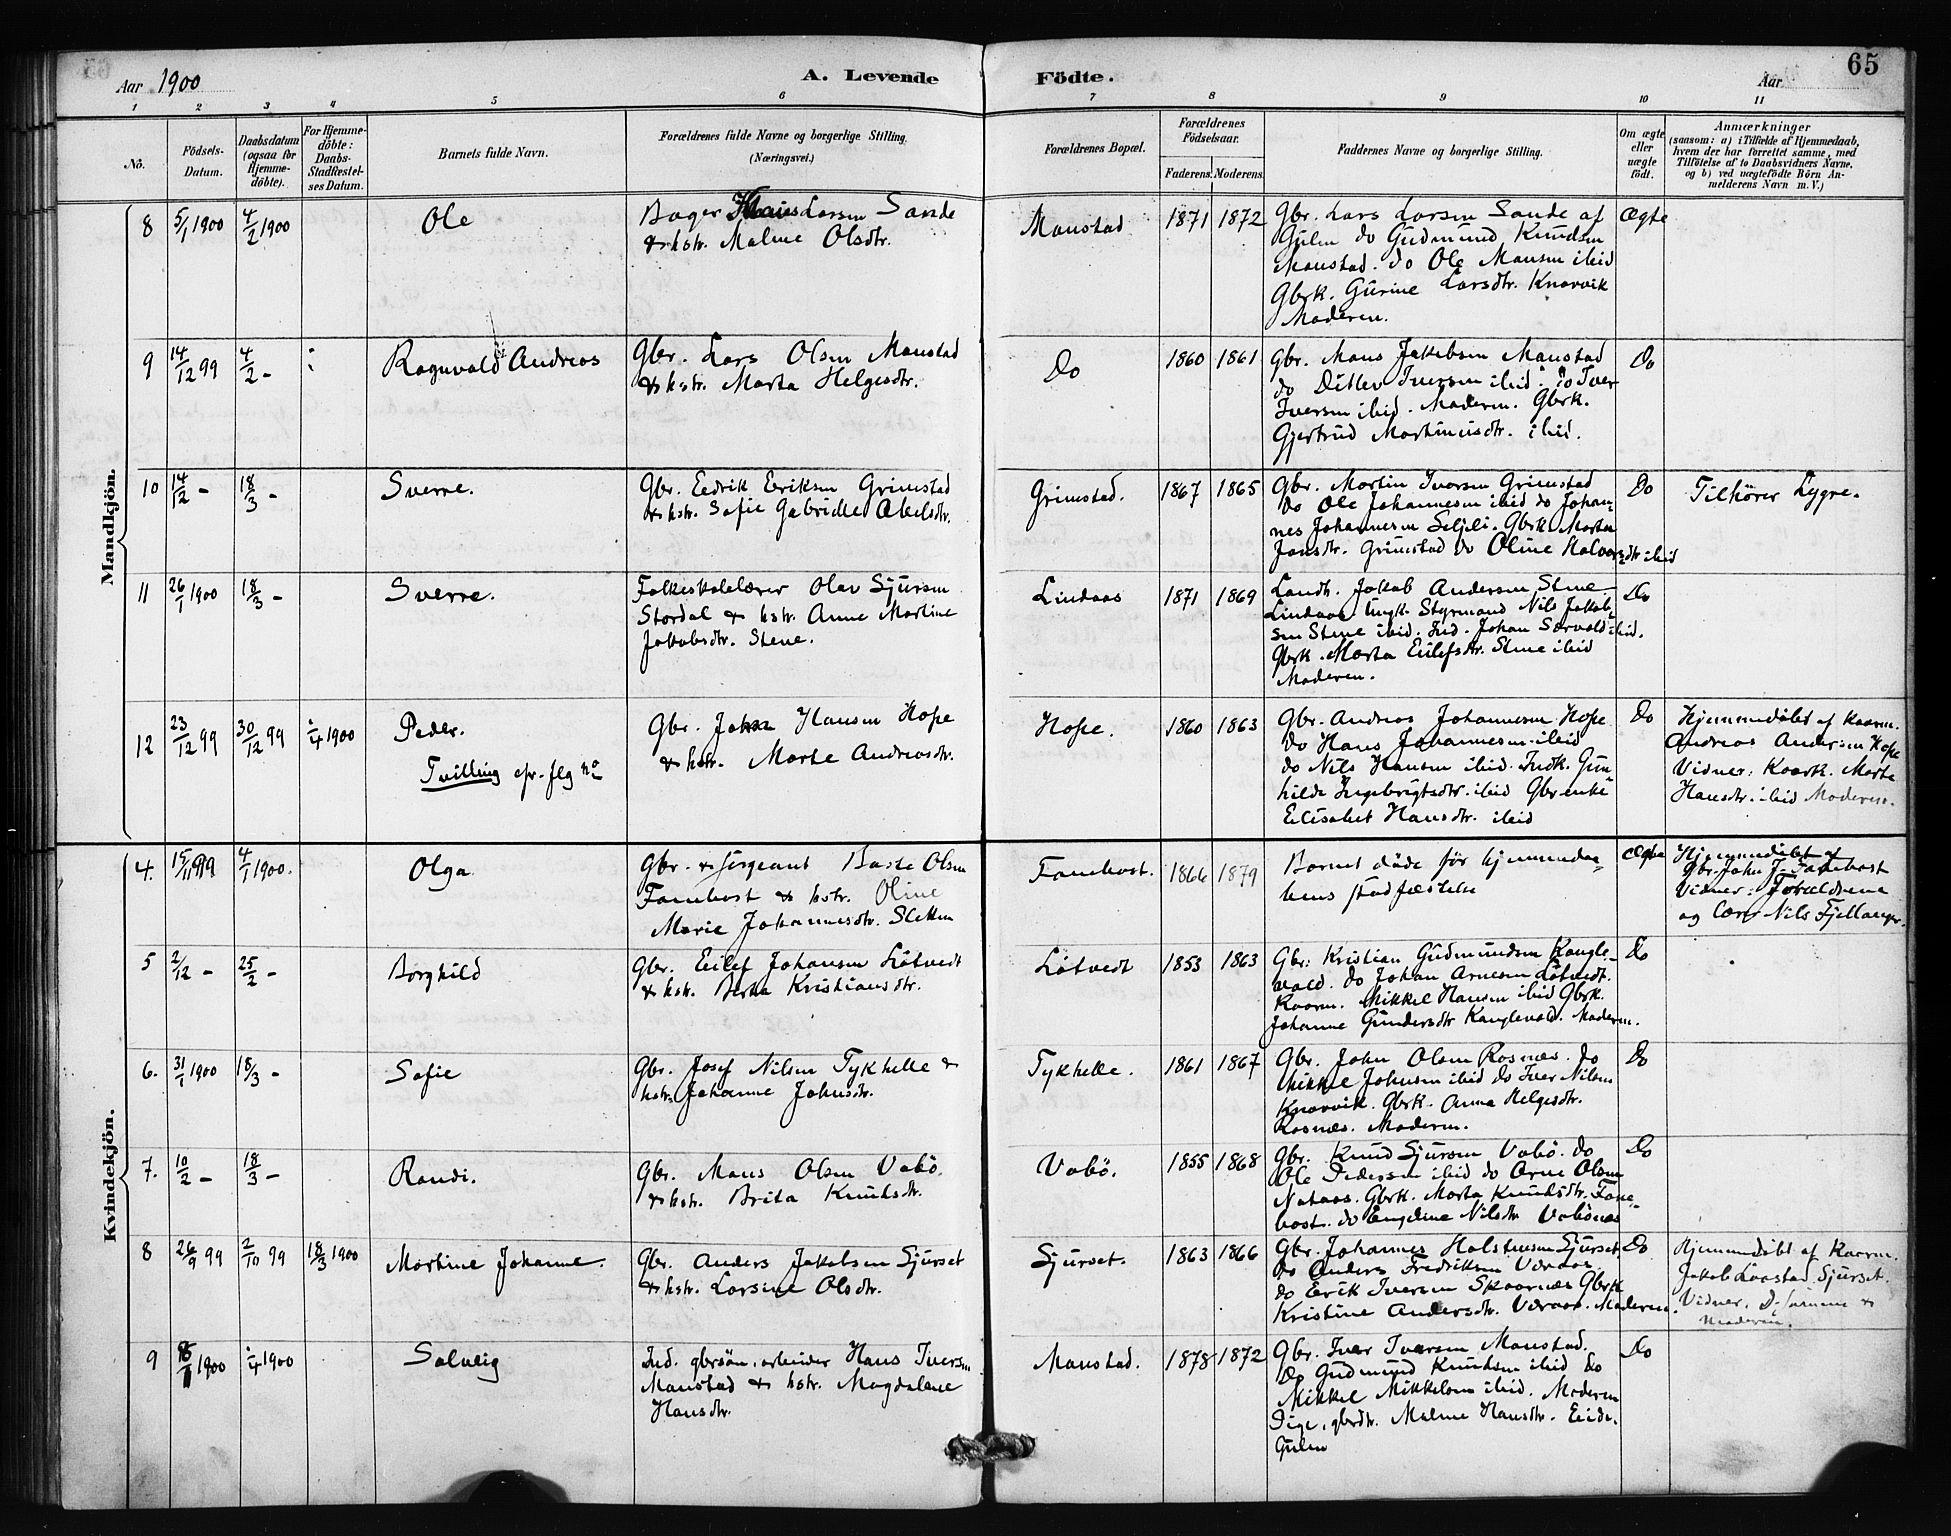 Aar 1900
A. Levende Födte.
Aar
65
1 2 3 4 5 6 7 8 9 10 11
No.
Födsels-Datum.
Daabsdatum (ogsaa for Hjemmedöbte).
For Hjemmedöbte: Daabs-Stadfæstelses Datum.
Barnets fulde Navn.
Forældrenes fulde Navne og borgerlige Stilling.
(Næringsvei.)
Forældrenes Bopæl.
Forældrenes Födselsaar.
Faderens. Moderens.
Faddernes Navne og borgerlige Stilling.
Om ægte eller uægte födt.
Anmærkninger
(saasom: a) i Tilfælde af Hjemmedaab, hvem der har forrettet samme, med Tilföielse af to Daabsvidners Navne, og b) ved uægtefödte Börn Anmelderens Navn m. V.)
Mandkjön.
8 5/1 1900 4/2 1900 Ole
Bager Hans Larsen Sande
& hstr. Malene Olsdtr.
Manstad 1871 1872
Gbr. Lars Larsen Sande af
Gulen do Gudmund Knudsen
Manstad. do Ole Mansen ibid
Gbrk. Gurine Larsdtr. Knarvik
Moderen.
Ægte
9 14/12 99 4/2 - Ragnvald Andreas
Gbr. Lars Olsen Manstad
& hstr. Marta Helgesdtr.
Do 1860 1861
Gbr. Mans Jakobsen Manstad
do Ditlev Iversen ibid. do Iver
Iversen ibid. Moderen. Gbrk.
Gjertrud Martinusdtr. ibid.
Do
10 14/12 - 18/3 - Sverre.
Gbr. Eedrik Eriksen Grimstad
& hstr. Sofie Gabrielle Abelsdtr.
Grimstad. 1867 1865
Gbr. Martin Iversen Grimstad
do Ole Johannesen ibid do Johan-
nes Johannesen Seljeli. Gbrk Marta
Jansdtr. Grimstad do Oline Halvorsdtr ibid
Do
Tilhører Lygre.
11 26/1 1900 18/3 - Sverre.
Folkeskolelærer Olav Sjursen
Stordal & hstr. Anne Martine
Jakobsdtr. Stene.
Lindaas 1871 1869
Landh. Jakob Andersen Stene
Lindaas Ungk. Styrmand Nils Jakob-
sen Stene ibid. Ind. Johan Sørvold ibid.
Gbrk. Marta Eilefsdtr. Stene ibid
Moderen.
Do
12 23/12 99 30/12 99 1/4 1900 Peder.
Tvilling cfr. flg no
Gbr. John Hansen Hope
& hstr. Marte Andreasdtr.
Hope. 1860 1863
Gbr. Andreas Johannesen Hope
do Hans Johannesen ibid
do Nils Hansen ibid. Indk. Gun-
hilda Ingebrigtsdtr. ibid Gbr.enke
Elisabet Hansdtr. ibid
Do
Hjemmedøbt af Kaarm.
Andreas Andersen Hope
Vidner: Kaark. Marte
Hansdtr. ibid Moderen.
Kvindekjön.
4. 15/11 99 4/1 1900. Olga
Gbr. & Sergeant Baste Olsen
Fanebost & hstr. Oline
Marie Johannesdtr. Sletten
Fanebost. 1866 1879
Barnet døde før hjemmedaa-
bens stadfæstelse
Ægte
Hjemmedøbt af
Gbr. John J. Fanebost
Vidner: Forældrene
og Lærer Nils Fjellanger.
5 2/12 - 25/2 - Borghild
Gbr. Eilef Johansen Løtvedt
& hstr. Berta Kristiansdtr.
Løtvedt 1853 1863
Gbr. Kristian Gudmundsen Kangle-
vald. do Johan Arnesen Løtvedt.
Kaarm. Mikkel Hansen ibid Gbrk.
Johanne Gundersdtr Kanglevald. Moderen.
Do
6. 31/1 1900 18/3 - Sofie
Gbr. Josef Nilsen Tykhelle &
hstr. Johanne Johnsdtr.
Tykhelle. 1861 1867
Gbr. John Olsen Rosnæs. do
Mikkel Johnsen ibid do Iver Nilsen
Knarvik. Gbrk. Anna Helgesdtr.
Rosnæs. Moderen.
Do
7. 10/2 - 18/3 - Randi.
Gbr. Mans Olsen Vabø.
& hstr. Brita Knudsdtr.
Vabø. 1855 1868
Gbr. Knud Sjursen Vabø. do
Ole Pedersen ibid do Arne Olsen
Nataas. Gbrk. Marta Knudsdtr. Fane-
bost. do Engeline Nilsdtr Vabønes
Do
8 26/9 99 2/10 99 18/3 1900 Martine Johanne.
Gbr. Anders Jakobsen Sjurset
& hstr. Larsine Olsdtr.
Sjurset. 1863 1866
Gbr. Johannes Halstensen Sjurset
do Anders Fredriksen Vøraas.
do Erik Iversen Skaarnæs Gbrk
Kristine Andersdtr. Vøraas. Moderen.
Do
Hjemmedøbt af Kaarm.
Jakob Sjurset.
Vidner. &
Moderen.
9 1900 1/4 1900 Solveig
Ind. gbrsøn, arbeider Hans Iversen
Manstad & hstr. Magdalene
Hansdtr.
Manstad. 1878 1872
Gbr. Iver Iversen Manstad.
do Gudmund Knudsen ibid do
Mikkel Mikkelsen ibid. Moderen
Pige, gbrdtr. Malene Hansdtr. Eide.
Gulen
Do